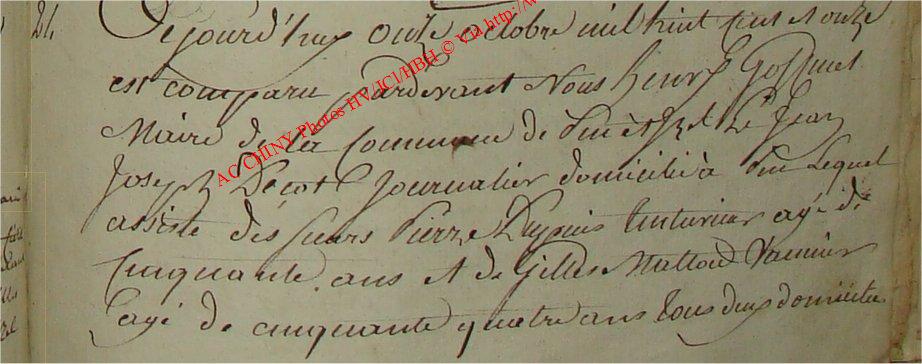 24 Cejourd'huy onze octobre mil huit cent et onze
est comparu pardevant Nous henry Goffinet
Maire de la Commune de Pin et Izel Le Jean
Joseph Decot Journalier domicilié à Pin Lequel
assisté des sieurs Pierre Dupuis ageé de
Cinquante ans et de Gilles Mattard Vannier
agé de cinquante quatre ans tous deux domiciliés
AC CHINY Photos HV/JCI/HBH © VU http://w